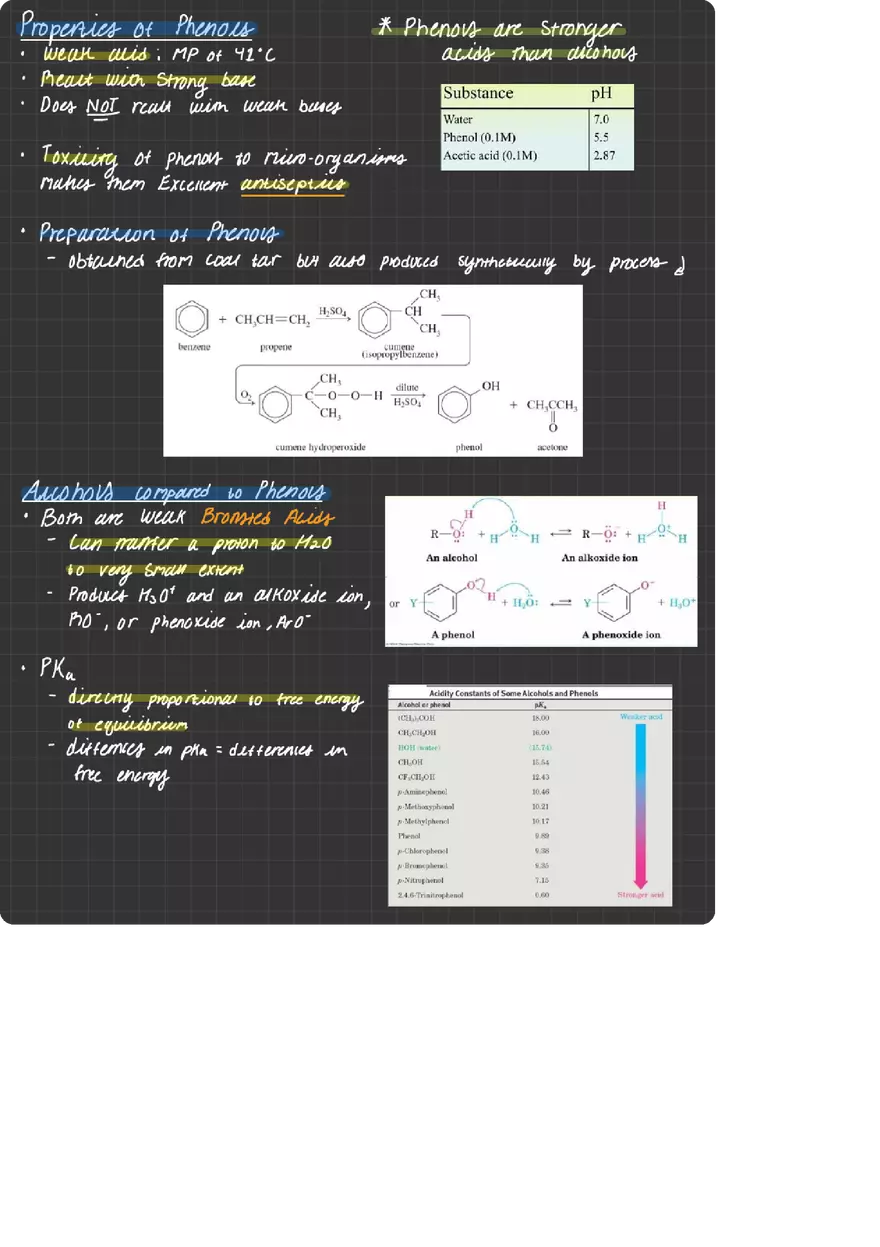 Properties of Phenols
* Phenols are stronger
acids than alcohols
• Weak acid : MP of 41°C
• React with strong base
• Does NOT react with weak bases
Substance pH
Water 7.0
Phenol (0.1M) 5.5
Acetic acid (0.1M) 2.87
• Toxicity of phenols to micro-organisms
makes them Excellent antiseptics
• Preparation of Phenols
- obtained from coal tar but also produced synthetically by process
benzene + CH₃CH=CH₂ H₂SO₄ CH CH₃ CH₃
propene cumene
(isopropylbenzene)
O₂ CH₃ C—O—O—H CH₃ dilute H₂SO₄ OH + CH₃CCH₃ O
cumene hydroperoxide phenol acetone
Alcohols compared to Phenols
• Both are weak Bronsted Acids
- Can transfer a proton to H2O
to very small extent
- Produces H3O⁺ and an alkoxide ion,
RO⁻, or phenoxide ion, ArO⁻
R—O: H + H O H ⇌ R—O:⁻ + H O⁺ H H
An alcohol An alkoxide ion
or Y O H + H₂O: ⇌ Y O⁻ + H₃O⁺
A phenol A phenoxide ion
• PKa
- directly proportional to free energy
of equilibrium
- differences in pKa = differences in
free energy
Acidity Constants of Some Alcohols and Phenols
Alcohol or phenol pKₐ
(CH₃)₃COH 18.00 Weaker acid
CH₃CH₂OH 16.00
HOH (water) (15.74)
CH₃OH 15.54
CF₃CH₂OH 12.43
p-Aminophenol 10.46
p-Methoxyphenol 10.21
p-Methylphenol 10.17
Phenol 9.89
p-Chlorophenol 9.38
p-Bromophenol 9.35
p-Nitrophenol 7.15
2,4,6-Trinitrophenol 0.60 Stronger acid